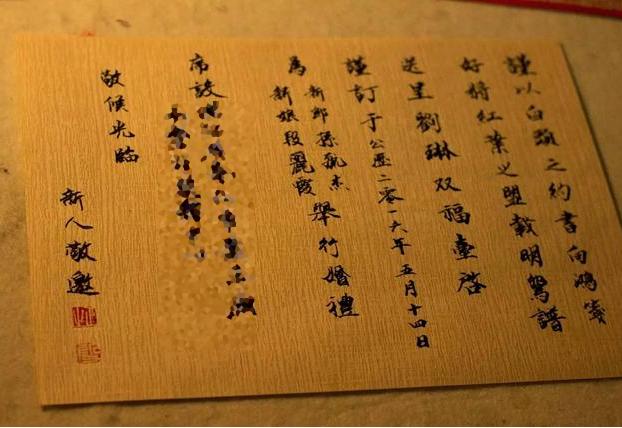 謹以白頭之約書向鴻箋
好將紅葉之盟載明鴛譜
送呈劉琳双福臺啓
謹訂于公歷二零一六年五月十四日
為
新郎孫
新娘段麗霞
舉行婚禮
席設
敬候光臨
新人敬邀